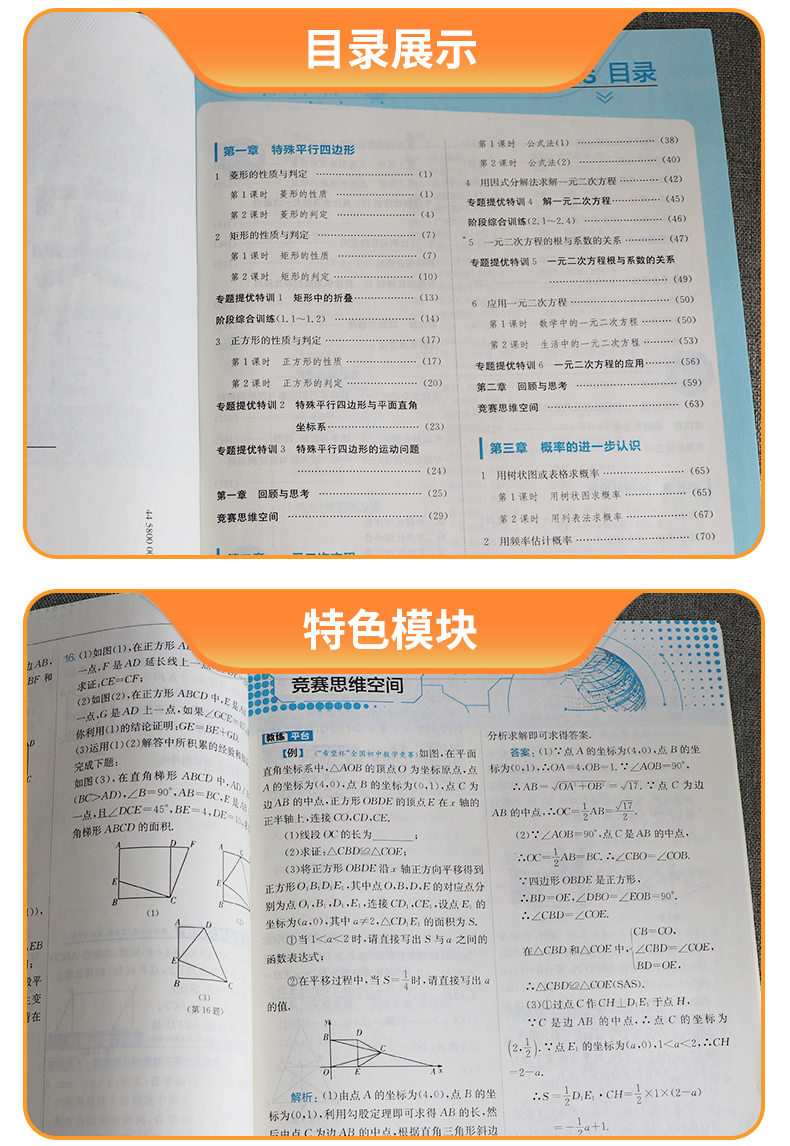 目录展示
目录
第一章 特殊平行四边形
1 菱形的性质与判定 ……………………(1)
第1课时 菱形的性质 ………………(1)
第2课时 菱形的判定 ………………(4)
2 矩形的性质与判定 ……………………(7)
第1课时 矩形的性质 ………………(7)
第2课时 矩形的判定………………(10)
专题提优特训1 矩形中的折叠……………(13)
阶段综合训练(1.1～1.2) ………………(14)
3 正方形的性质与判定…………………(17)
第1课时 正方形的性质……………(17)
第2课时 正方形的判定……………(20)
专题提优特训2 特殊平行四边形与平面直角
坐标系……………………(23)
专题提优特训3 特殊平行四边形的运动问题
……………………………(24)
第一章 回顾与思考 ……………………(25)
竞赛思维空间 ……………………………(29)
第1课时 公式法(1) ………………(38)
第2课时 公式法(2) ………………(40)
4 用因式分解法求解一元二次方程………(42)
专题提优特训4 解一元二次方程…………(45)
阶段综合训练(2.1～2.4) ………………(46)
*5 一元二次方程的根与系数的关系………(47)
专题提优特训5 一元二次方程根与系数的关系
……………………………(49)
6 应用一元二次方程……………………(50)
第1课时 数学中的一元二次方程 ……(50)
第2课时 生活中的一元二次方程 ……(53)
专题提优特训6 一元二次方程的应用………(56)
第二章 回顾与思考 ……………………(59)
竞赛思维空间 ……………………………(63)
第三章 概率的进一步认识
1 用树状图或表格求概率………………(65)
第1课时 用树状图求概率…………(65)
第2课时 用列表法求概率…………(67)
2 用频率估计概率………………………(70)
特色模块
16. (1)如图(1),在正方形
一点,F是AD延长线上一点
求证:CE=CF;
(2)如图(2),在正方形ABCD中,E是
一点,G是AD上一点,如果∠GCE=
你利用(1)的结论证明:GE=BF+GD
(3)运用(1)(2)解答中所积累的经验和
完成下题:
如图(3),在直角梯形ABCD中,AD
(BC>AD),∠B=90°,AB=BC,E是
一点,且∠DCE=45°,BE=4,DE=10
角梯形ABCD的面积.
A D F
E
B C
(1)
(2)
A D
E
B C
(3)
(第16题)
竞赛思维空间
教练平台
【例】(“希望杯”全国初中数学竞赛)如图,在平面
直角坐标系中,△AOB的顶点O为坐标原点,点
A的坐标为(4,0),点B的坐标为(0,1),点C为
边AB的中点,正方形OBDE的顶点E在x轴的
正半轴上,连接CO,CD,CE.
(1)线段OC的长为________;
(2)求证:△CBD≌△COE;
(3)将正方形OBDE沿x轴正方向平移得到
正方形O₁B₁D₁E₁,其中点O,B,D,E的对应点分
别为点O₁,B₁,D₁,E₁,连接CD₁,CE₁,设点E₁的
坐标为(a,0),其中a≠2,△CD₁E₁的面积为S.
①当1<a<2时,请直接写出S与a之间的
函数表达式;
②在平移过程中,当S=1/4时,请直接写出a
的值.
y
B D
C
O E A x
解析:(1)由点A的坐标为(4,0),点B的坐
标为(0,1),利用勾股定理即可求得AB的长,然
后由点C为边AB的中点,根据直角三角形斜边
分析求解即可求得答案.
答案:(1)∵点A的坐标为(4,0),点B的坐
标为(0,1),∴OA=4,OB=1.∵∠AOB=90°,
∴AB=√(OA²+OB²)=√17.∵点C为边
AB的中点,∴OC=1/2AB=√17/2.
(2)∵∠AOB=90°,点C是AB的中点,
∴OC=1/2AB=BC.∴∠CBO=∠COB.
∵四边形OBDE是正方形,
∴BD=OE,∠DBO=∠EOB=90°.
∴∠CBD=∠COE.
CB=CO,
在△CBD和△COE中,∠CBD=∠COE,
BD=OE,
∴△CBD≌△COE(SAS).
(3)①过点C作CH⊥D₁E₁于点H,
∵C是边AB的中点,∴点C的坐标为
(2,1/2).∵点E₁的坐标为(a,0),1<a<2,∴CH
=2-a.
∴S=1/2D₁E₁·CH=1/2×1×(2-a)
=-1/2a+1.